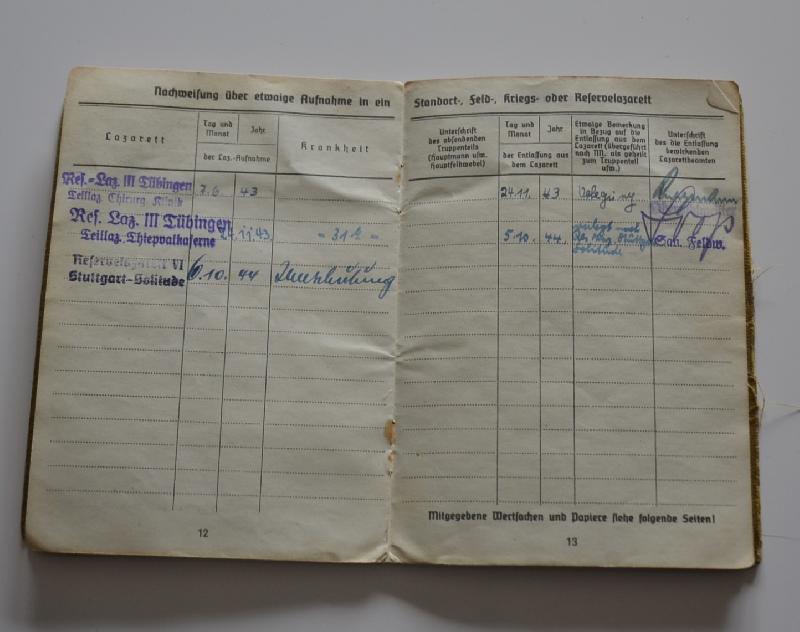 Nachweisung über etwaige Aufnahme in ein
Lazarett
Tag und Monat
Jahr
der Laz.-Aufnahme
Krankheit
Res.-Laz. III Tübingen
Teillaz. Chirurg. Klinik
7.6. 43
Res. Laz. III Tübingen
Teillaz. Thiepvalkaserne
11.43. - 31a -
Reservelazarett VI
Stuttgart-Solitude
6.10. 44
12
Standort-, Feld-, Kriegs- oder Reservelazarett
Unterschrift
des absendenden
Truppenteils
(Hauptmann usw.
Hauptfeldwebel)
Tag und Monat
Jahr
der Entlassung aus
dem Lazarett
Etwaige Bemerkung
in Bezug auf die
Entlassung aus dem
Lazarett (übergeführt
nach NN, als geheilt
zum Truppenteil
usw.)
Unterschrift
des die Entlassung
bewirkenden
Lazarettbeamten
24.11. 43
5.10. 44. verlegt nach
Res. Laz. Stuttgart
Solitude
San. Feldw.
Mitgegebene Wertsachen und Papiere siehe folgende Seiten!
13